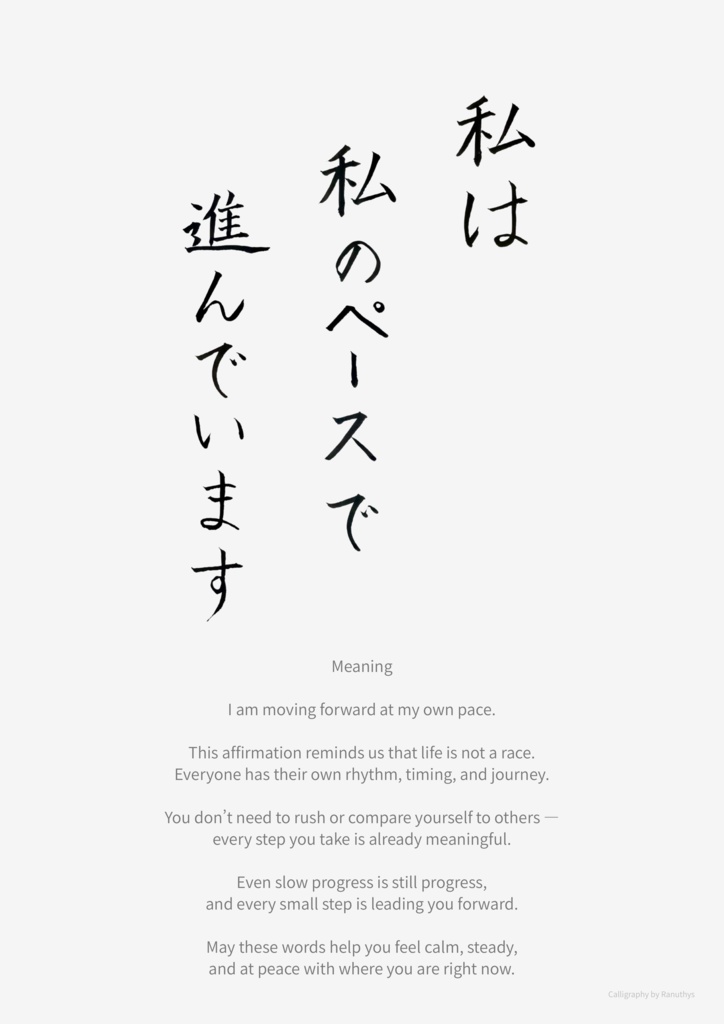 私は
私のペースで
進んでいます
Meaning
I am moving forward at my own pace.
This affirmation reminds us that life is not a race.
Everyone has their own rhythm, timing, and journey.
You don’t need to rush or compare yourself to others —
every step you take is already meaningful.
Even slow progress is still progress,
and every small step is leading you forward.
May these words help you feel calm, steady,
and at peace with where you are right now.
Calligraphy by Ranuthys